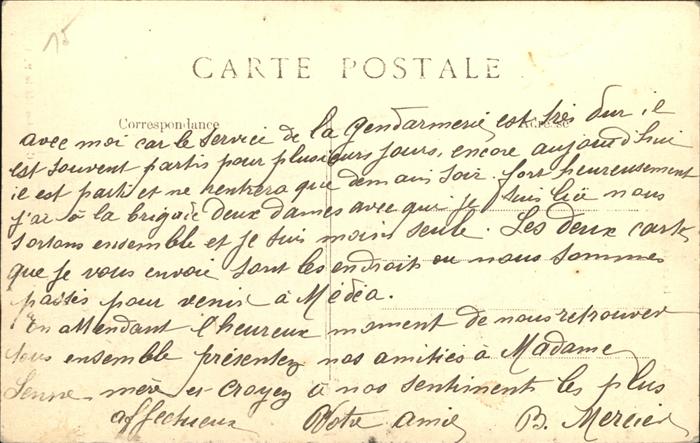 15
CARTE POSTALE
Correspondance
Adresse
avec moi car le service de la gendarmerie est très dur il
est souvent partis pour plusieurs jours, encore aujourd'hui
il est parti et ne rentrera que demain soir. fort heureusement
j'ai à la brigade deux dames avec qui je suis liée nous
sortons ensemble et je suis moins seule. Les deux cartes
que je vous envoie sont les endroits ou nous sommes
passés pour venir à Médéa.
En attendant l'heureux moment de nous retrouver
tous ensemble présentez nos amitiés à Madame
mère et croyez à nos sentiment les plus
affectueux Votre amie B. Mercier